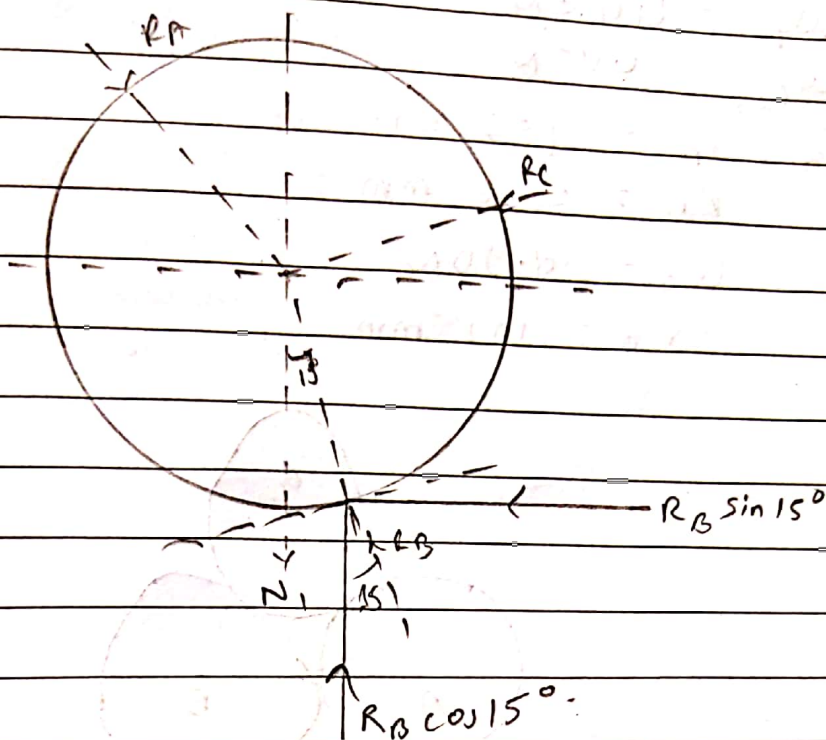 RA
RC
15
RB sin 15°
RB
15
RB cos 15°